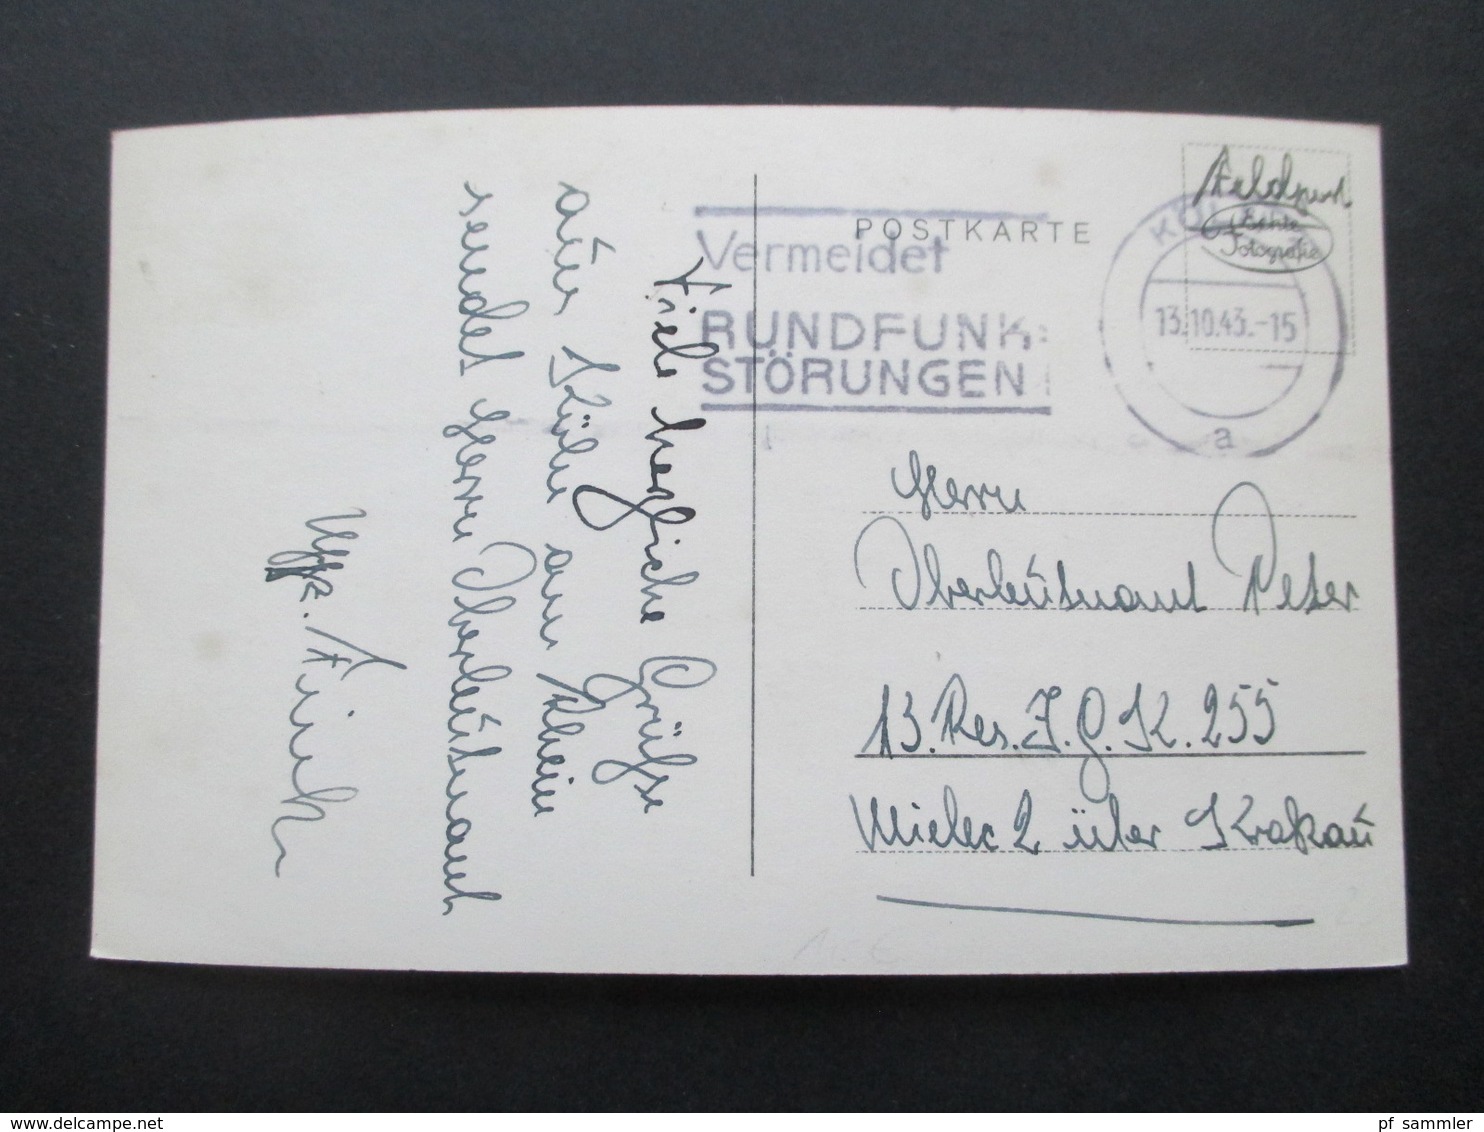 POSTKARTE
Feldpost
Echte
Fotografie
Vermeidet
RUNDFUNK-
STÖRUNGEN
KÖLN
13.10.43.-15
a
Herrn
Oberleutnant Peter
13. Res. I.G.K. 255
Mielec 2 über Krakau
Viele herzliche Grüße
aus Köln am Rhein
sendet Herrn Oberleutnant
Uffz. Finck
www.delcampe.net
pf_sammler